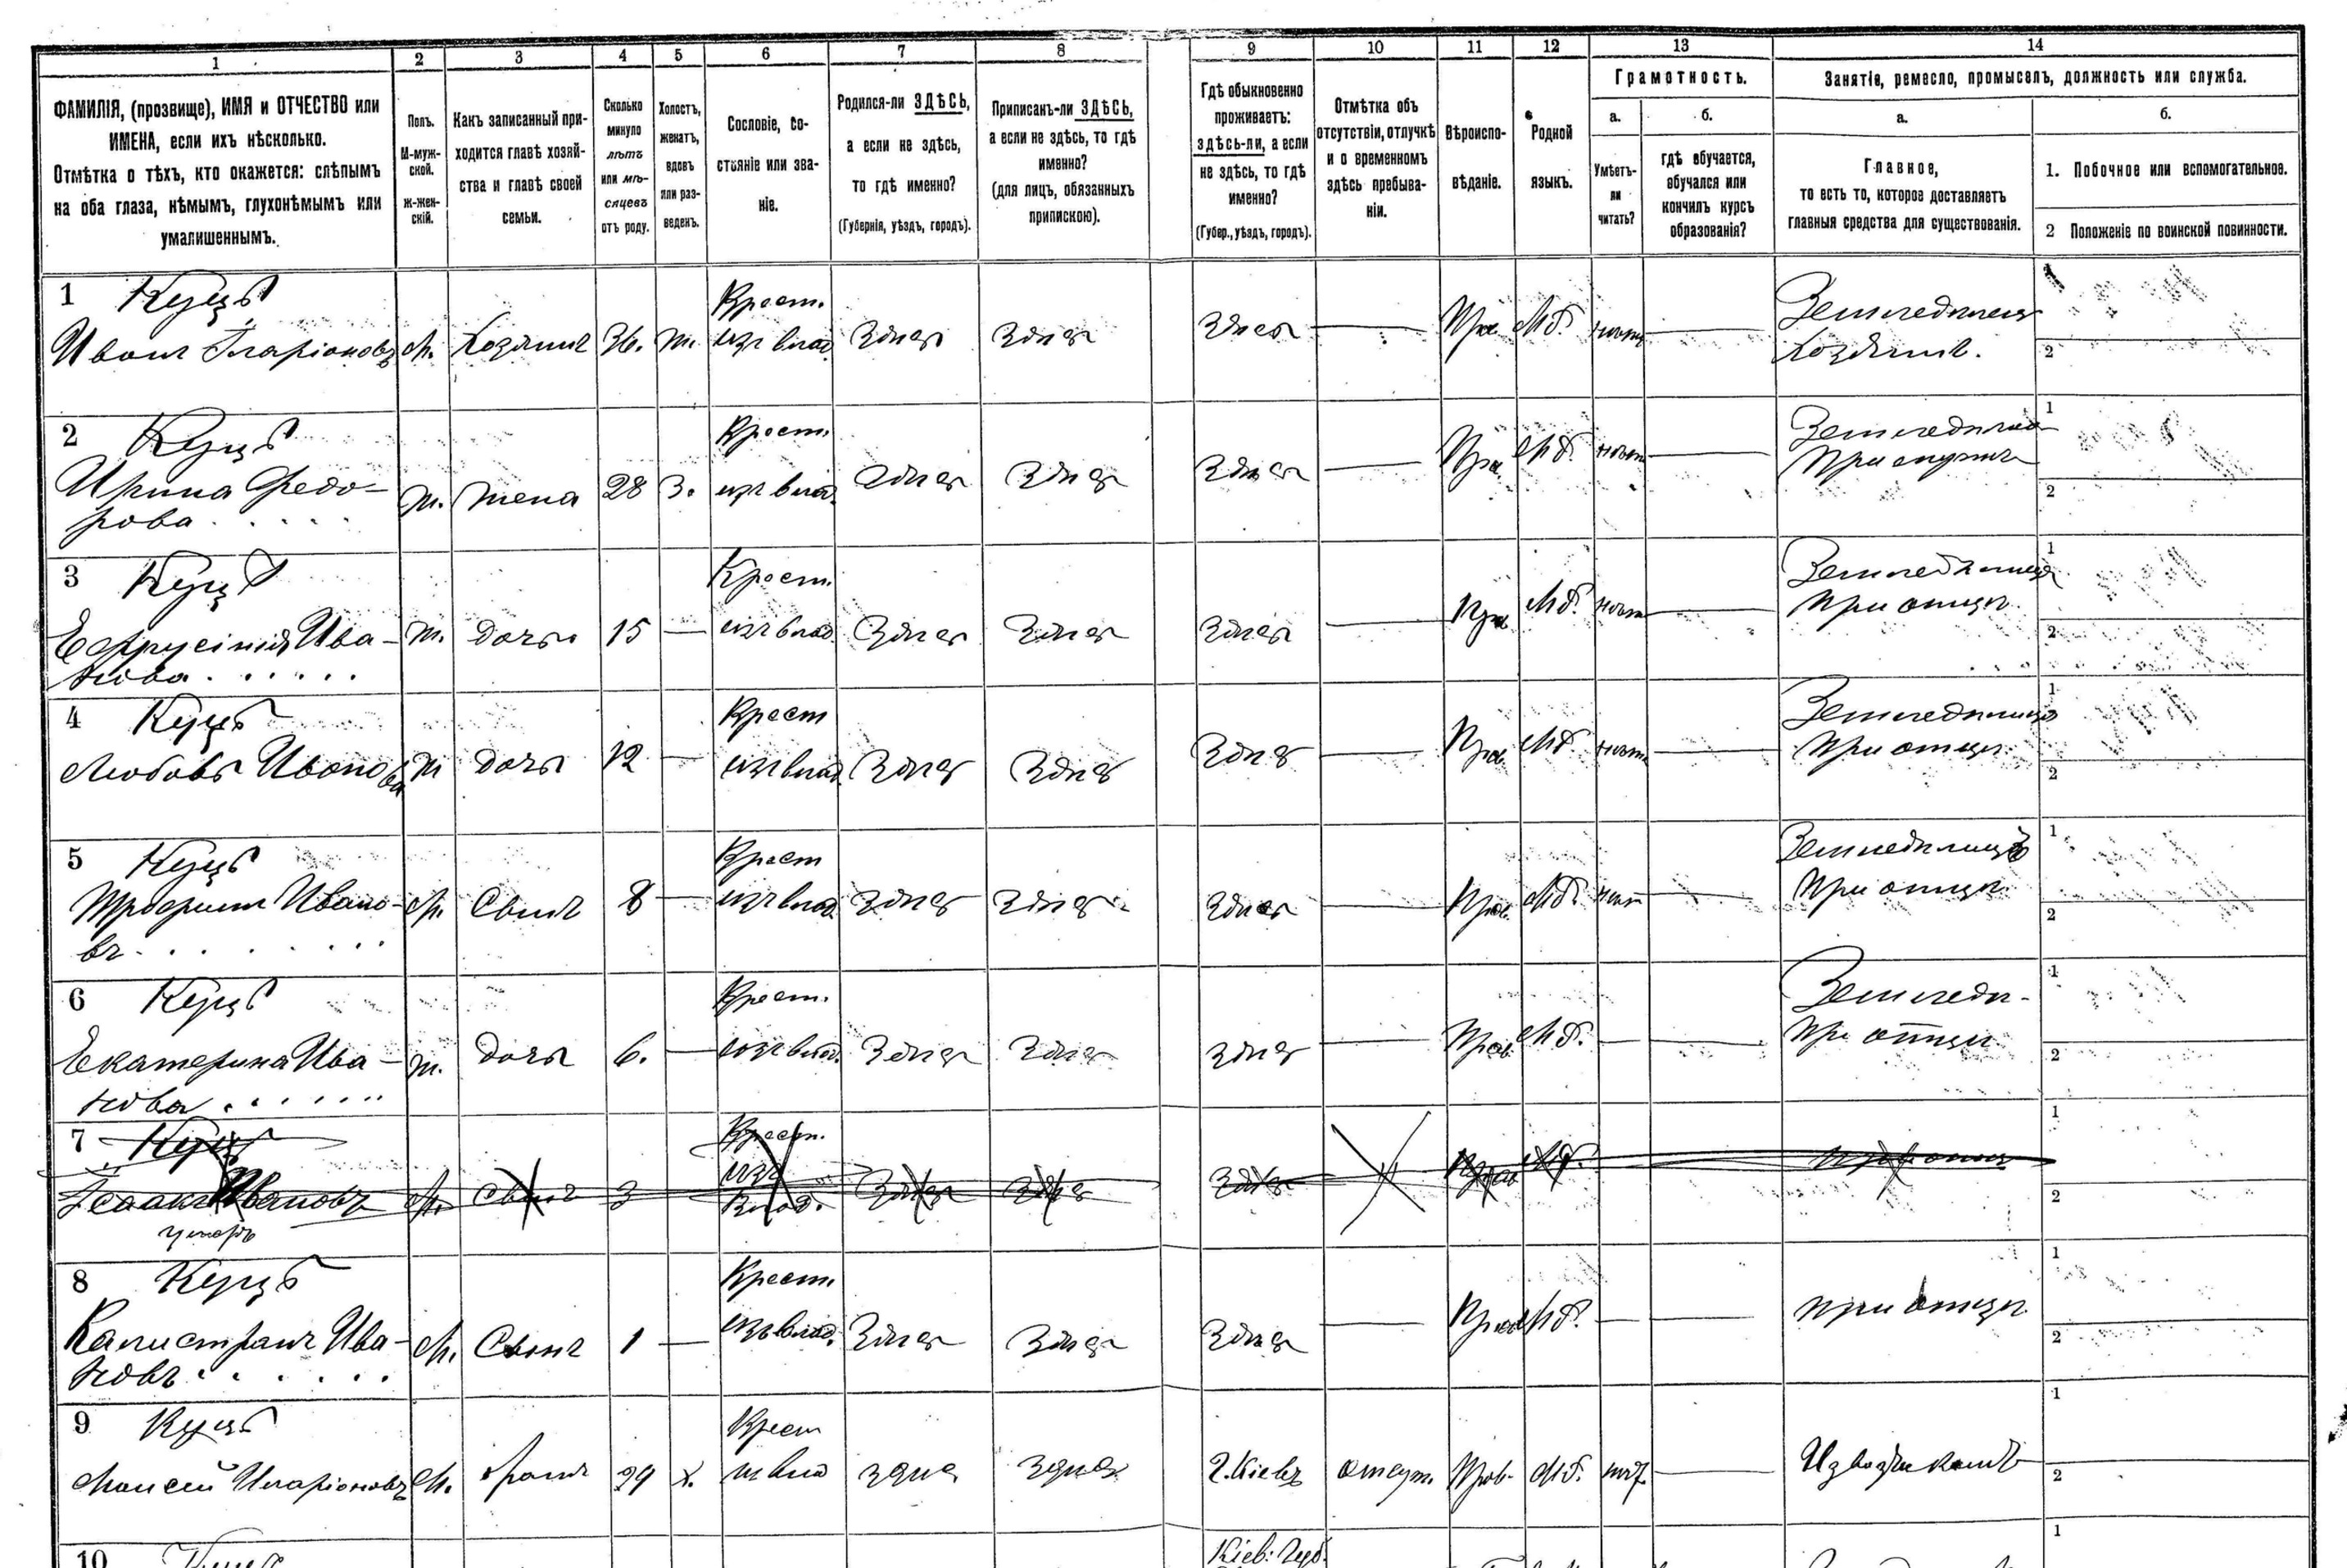 1 2 3 4 5 6 7 8 9 10 11 12 13 14
ФАМИЛІЯ, (прозвище), ИМЯ и ОТЧЕСТВО или
ИМЕНА, если ихъ нѣсколько.
Отмѣтка о тѣхъ, кто окажется: слѣпымъ
на оба глаза, нѣмымъ, глухонѣмымъ или
умалишеннымъ.
Полъ.
М-муж-
ской.
Ж-жен-
скій.
Какъ записанный при-
ходится главѣ хозяй-
ства и главѣ своей
семьи.
Сколько
минуло
лѣтъ
или мѣ-
сяцевъ
отъ роду.
Холостъ,
женатъ,
вдовъ
или раз-
веденъ.
Сословіе, со-
стояніе или зва-
ніе.
Родился-ли ЗДѢСЬ,
а если не здѣсь,
то гдѣ именно?
(Губернія, уѣздъ, городъ).
Приписанъ-ли ЗДѢСЬ,
а если не здѣсь, то гдѣ
именно?
(для лицъ, обязанныхъ
припискою).
Гдѣ обыкновенно
проживаетъ:
здѣсь-ли, а если
не здѣсь, то гдѣ
именно?
(Губер., уѣздъ, городъ).
Отмѣтка объ
отсутствіи, отлучкѣ
и о временномъ
здѣсь пребыва-
ніи.
Вѣроиспо-
вѣданіе.
Родной
языкъ.
Грамотность.
а.
Умѣетъ-
ли
читать?
б.
гдѣ обучается,
обучался или
кончилъ курсъ
образованія?
Занятіе, ремесло, промыселъ, должность или служба.
а.
Главное,
то есть то, которое доставляетъ
главныя средства для существованія.
б.
1. Побочное или вспомогательное.
2 Положеніе по воинской повинности.
1 Куцъ Крест. Земледѣлецъ 1
Иванъ Иларіоновъ М. Хозяинъ 36. Ж. изъ влад. Здѣсь Здѣсь Здѣсь — Пра. Мб. нѣтъ — Хозяинъ. 2
2 Куцъ Крест. 1
Ирина Федо- Ж. жена 28 З. изъ влад. Здѣсь Здѣсь Здѣсь — Пра. Мб. нѣтъ — При мужѣ 2
рова
3 Куцъ Крест. 1
Ефрусинія Ива- Ж. дочь 15 — изъ влад. Здѣсь Здѣсь Здѣсь — Пра Мб. нѣтъ — при отцѣ 2
нова
4 Куцъ Крест 1
Любовь Иванова Ж дочь 12 — изъ влад. Здѣсь Здѣсь Здѣсь — Пра. Мб. нѣтъ — при отцѣ 2
5 Куцъ Крест 1
Ивано- М. Сынъ 8 — изъ влад. Здѣсь Здѣсь Здѣсь — Прав. Мб. нѣтъ — при отцѣ 2
въ
6 Куцъ Крест. Земледѣ- 1
Екатерина Ива- Ж. дочь 6. — изъ влад. Здѣсь Здѣсь Здѣсь — Прав. Мб. — — При отцѣ 2
нова
7 Куцъ Крест. 1
Ісаакъ Ивановъ М. Сынъ 3 изъ влад. Здѣсь Здѣсь Здѣсь Прав Мб. при отцѣ 2
умеръ
8 Куцъ Крест. 1
Калистратъ Ива- М. Сынъ 1 — изъ влад. Здѣсь Здѣсь Здѣсь — Прав Мб. — — при отцѣ 2
новъ
9 Куцъ Крест 1
Моисей Иларіоновъ М. братъ 29 х. здѣсь здѣсь Г. Кіевъ отсут. Прав. Мб. — 2
10 Кіев: Губ. 1